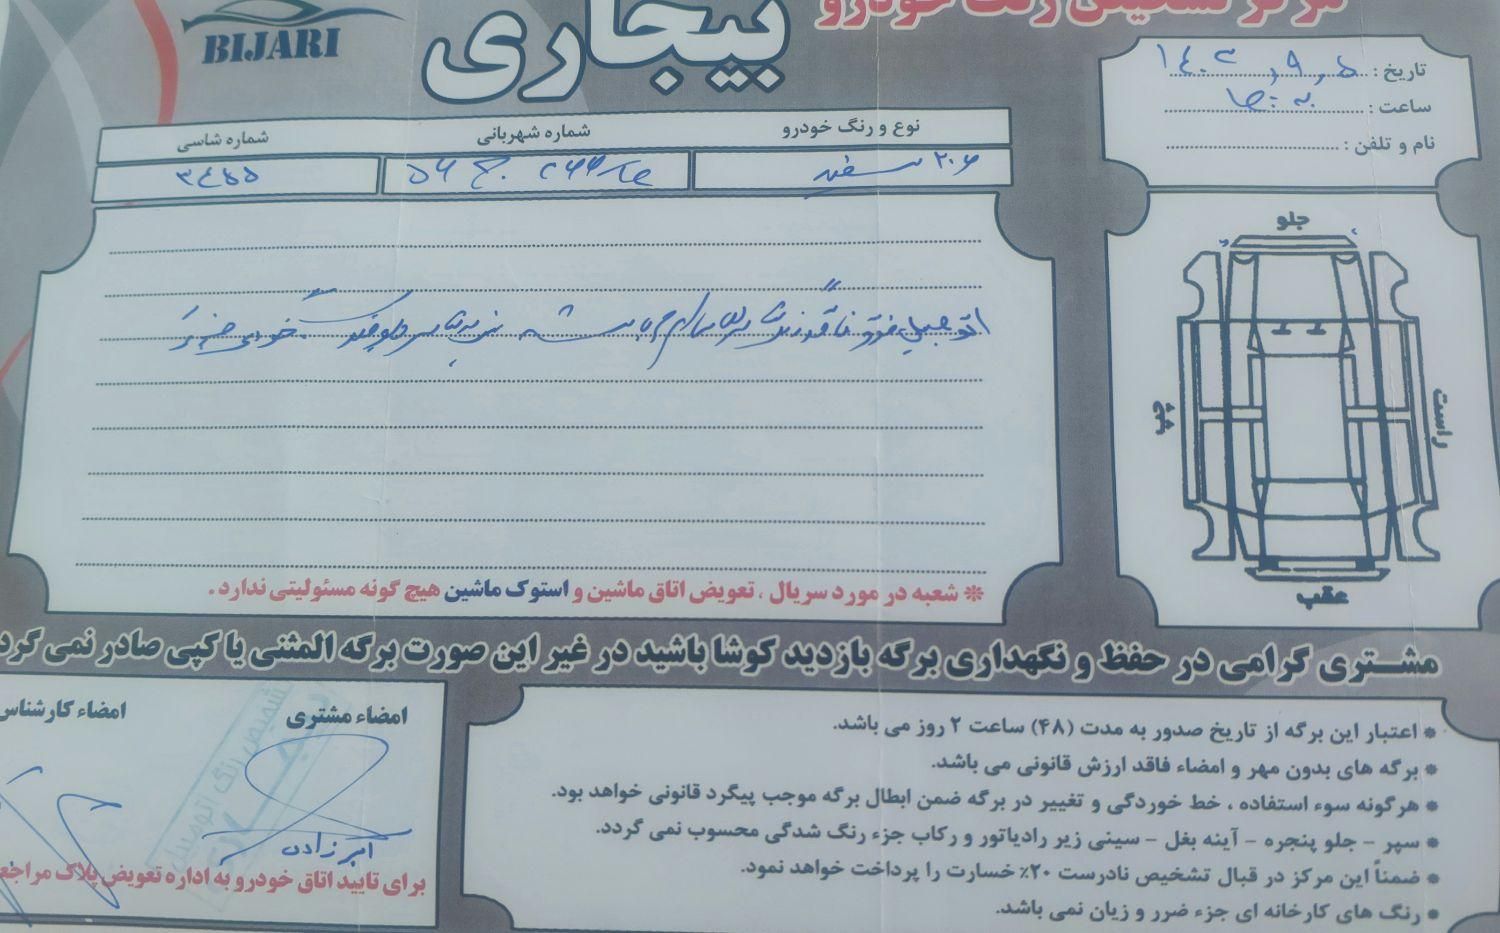 مرکز تشخیص رنگ خودرو
بیجاری
BIJARI
تاریخ : ۱۴۰۳٫۹٫۵
ساعت :
نام و تلفن :
نوع و رنگ خودرو
شماره شهربانی
شماره شاسی
۲۰۶ سفید
۳۴۵۵
جلو
راست
چپ
عقب
اتومبیل فوق فاقد رنگ
❊ شعبه در مورد سریال ، تعویض اتاق ماشین و استوک ماشین هیچ گونه مسئولیتی ندارد .
مشتری گرامی در حفظ و نگهداری برگه بازدید کوشا باشید در غیر این صورت برگه المثنی یا کپی صادر نمی گردد
❊ اعتبار این برگه از تاریخ صدور به مدت (۴۸) ساعت ۲ روز می باشد.
❊ برگه های بدون مهر و امضاء فاقد ارزش قانونی می باشد.
❊ هرگونه سوء استفاده ، خط خوردگی و تغییر در برگه ضمن ابطال برگه موجب پیگرد قانونی خواهد بود.
❊ سپر - جلو پنجره - آینه بغل - سینی زیر رادیاتور و رکاب جزء رنگ شدگی محسوب نمی گردد.
❊ ضمناً این مرکز در قبال تشخیص نادرست ۲۰٪ خسارت را پرداخت خواهد نمود.
❊ رنگ های کارخانه ای جزء ضرر و زیان نمی باشد.
امضاء مشتری
امضاء کارشناس
برای تایید اتاق خودرو به اداره تعویض پلاک مراجعه